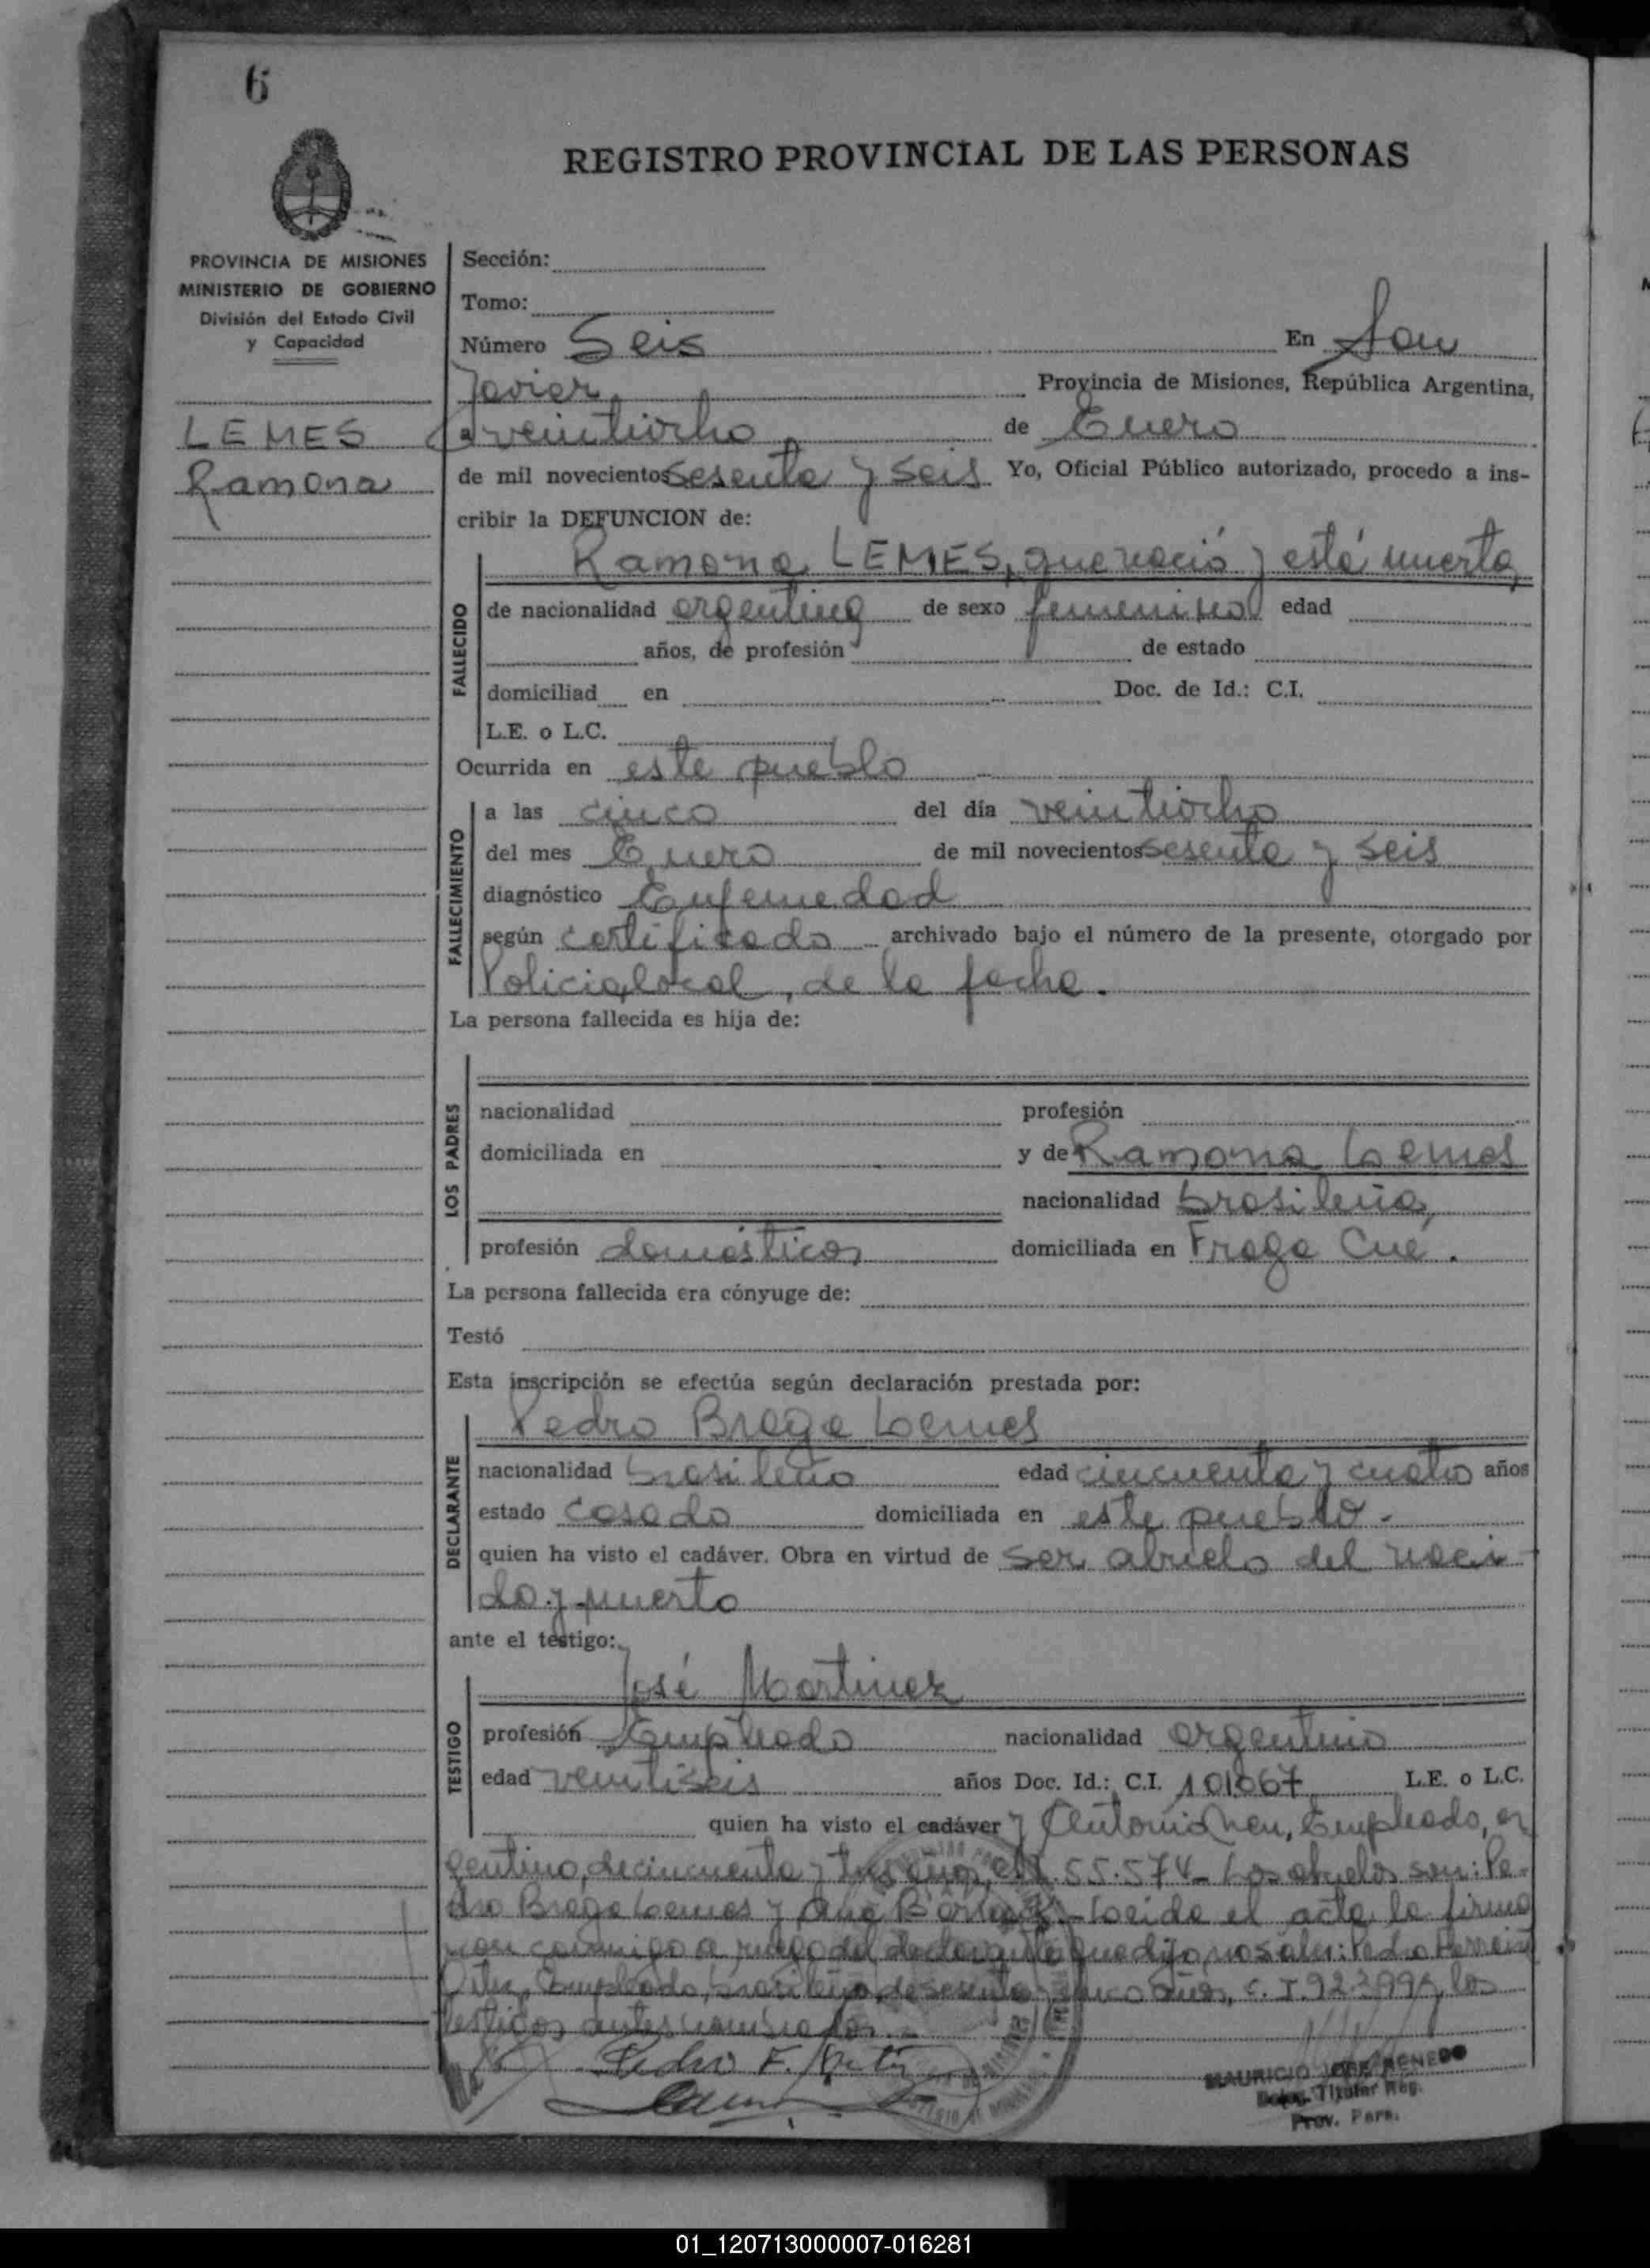 6
REGISTRO PROVINCIAL DE LAS PERSONAS
PROVINCIA DE MISIONES
MINISTERIO DE GOBIERNO
División del Estado Civil
y Capacidad
LEMES
Ramona
Sección:
Tomo:
Número Seis En San
Javier Provincia de Misiones, República Argentina,
a veintiocho de Enero
de mil novecientos sesenta y seis Yo, Oficial Público autorizado, procedo a ins-
cribir la DEFUNCION de:
Ramona LEMES, que nació y está muerta,
FALLECIDO
de nacionalidad argentina de sexo femenino edad
años, de profesión de estado
domiciliad en Doc. de Id.: C.I.
L.E. o L.C.
Ocurrida en este pueblo
FALLECIMIENTO
a las cinco del día veintiocho
del mes Enero de mil novecientos sesenta y seis
diagnóstico Enfemedad
según certificado archivado bajo el número de la presente, otorgado por
Policia local, de la fecha.
La persona fallecida es hija de:
LOS PADRES
nacionalidad profesión
domiciliada en y de Ramona Lemes
nacionalidad brasileña,
profesión domésticos domiciliada en Fraga Cue.
La persona fallecida era cónyuge de:
Testó
Esta inscripción se efectúa según declaración prestada por:
DECLARANTE
Pedro Braga Lemes
nacionalidad brasileño edad cincuenta y cuatro años
estado casado domiciliada en este pueblo.
quien ha visto el cadáver. Obra en virtud de ser abuelo del naci
do y muerto
ante el testigo:
José Martinez
TESTIGO
profesión Empleado nacionalidad argentino
edad veintiseis años Doc. Id.: C.I. 101.067 L.E. o L.C.
quien ha visto el cadáver y Empleado, ar
gentino, de cincuenta y tres años, 55.574- Los abuelos son: Pe-
dro Braga Lemes y Ana Leida el acta la firma
con conmigo a ruego del declarante que dijo no saber: Pedro
Empleado, brasileño, de sesenta y cinco años, C.I. los
testigos antes nombrados.
Pedro F.
MAURICIO JOSE
Deleg. Titular Reg.
Prov. Pers.
01_120713000007-016281